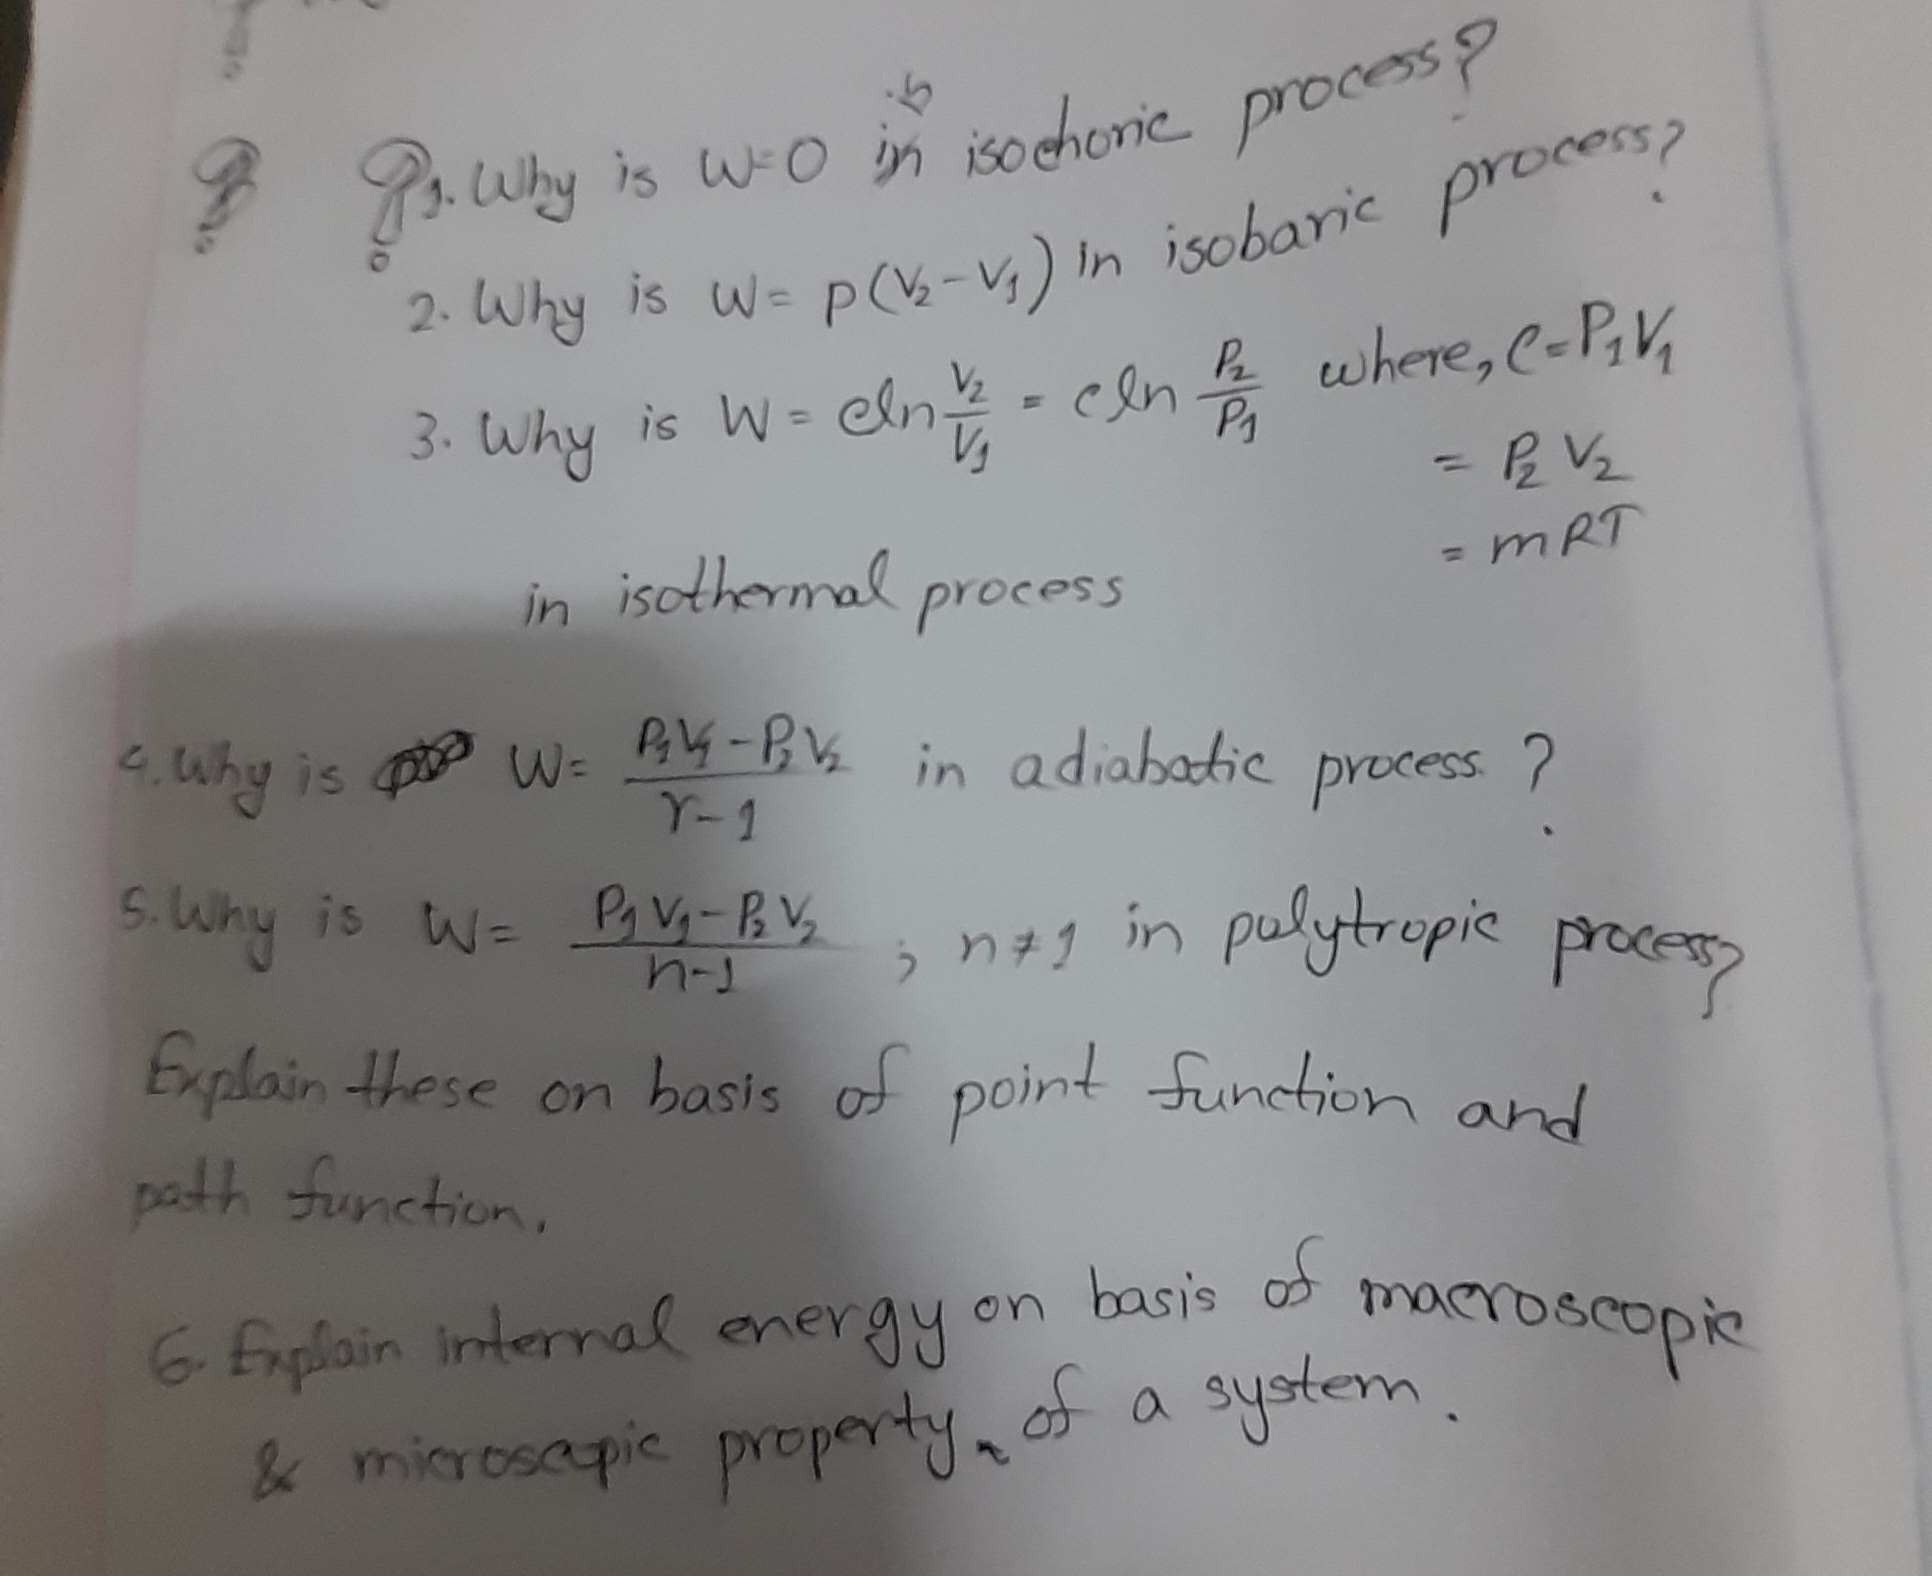 1. Why is W=0 in isochoric process?
2. Why is W = p(V₂-V₁) in isobaric process?
3. Why is W = cln V₂/V₁ = cln P₂/P₁ where, C=P₁V₁
= P₂ V₂
= mRT
in isothermal process
4. Why is W= P₁V₁-P₂V₂/γ-1 in adiabatic process?
5. Why is W= P₁V₁-P₂V₂/n-1 ; n≠1 in polytropic process?
Explain these on basis of point function and
path function.
6. Explain internal energy on basis of macroscopic
& microscopic property of a system.